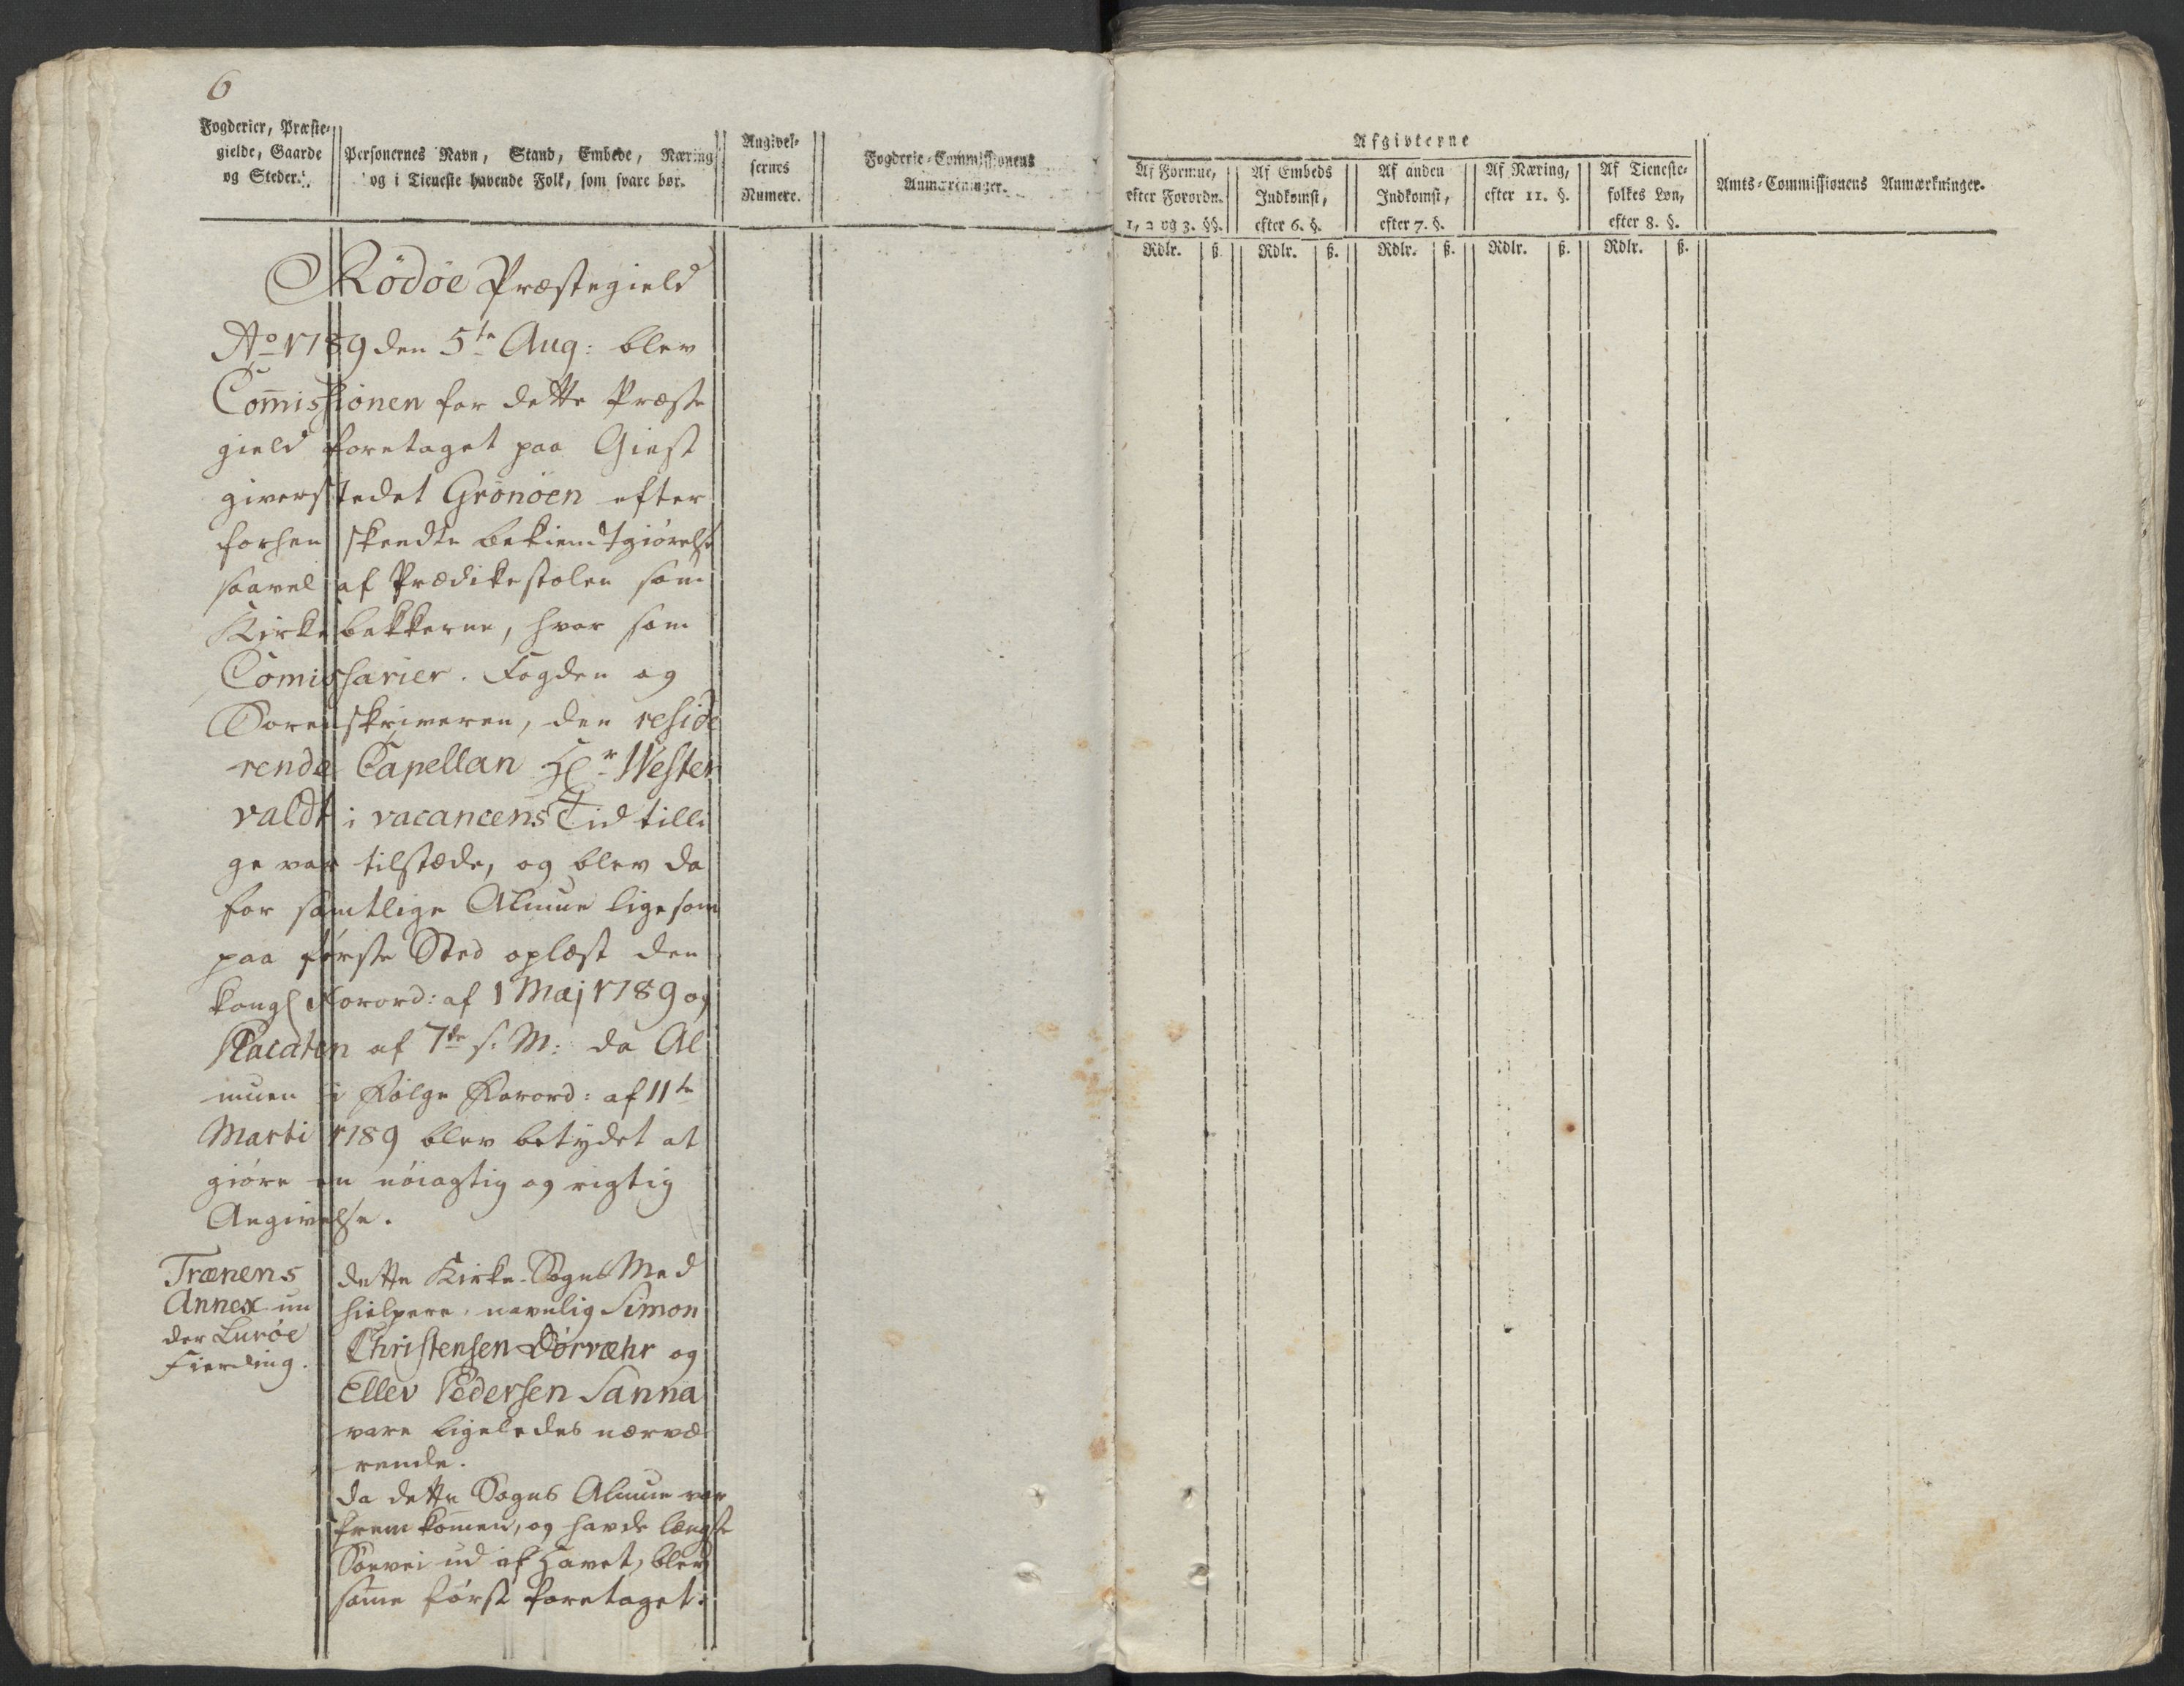 6
Fogderier, Præste-
gielde, Gaarde
og Steder.
Personernes Navn, Stand, Embede, Næring
og i Tieneste havende Folk, som svare bør.
Angivel-
sernes
Numere.
Fogderie-Commissionens
Anmærkninger.
Afgivterne
Af Formue,
efter Forordn.
1, 2 og 3. §§.
Af Embeds
Indkomst,
efter 6. §.
Af anden
Indkomst,
efter 7. §.
Af Næring,
efter 11. §.
Af Tieneste-
folkes Løn,
efter 8. §.
Amts-Commissionens Anmærkninger.
Rdlr. ß. Rdlr. ß. Rdlr. ß. Rdlr. ß. Rdlr. ß.
Rödöe Præstegield
Ao 1789 den 5te Aug: blev
Com̅issionen for dette Præste
gield foretaget paa Giest
giverstedet Grönöen efter
forhen skeedte bekiendtgiörelse
saavel af Prædikestolen som
Kirkebakkerne, hvor som
Comissarier. Fogden og
Sorenskriveren, den reside
rende Capellan Hr Wester
valdt i vacancens Tid tilli
ge var tilstæde, og blev da
for samtlige Almue ligesom
paa förste Sted oplæst den
kongl Forord: af 1 Maj 1789 og
Placaten af 7de s. M: da Al
muen i Fölge Forord: af 11te
Marti 1789 blev betydet at
giöre en nöiagtig og rigtig
Angivelse.
Trænens
Annex un
der Luröe
Fierding.
dette Kirke-Sogns Med
hielpere, navnlig Simon
Christensen Dörvæhr og
Ellev Pedersen Sanna
vare ligeledes nærvæ
rende.
Da dette Sogns Almue var
frem kom̅en, og havde længste
Söevei ud af Havet, blev
sam̅e först foretaget.